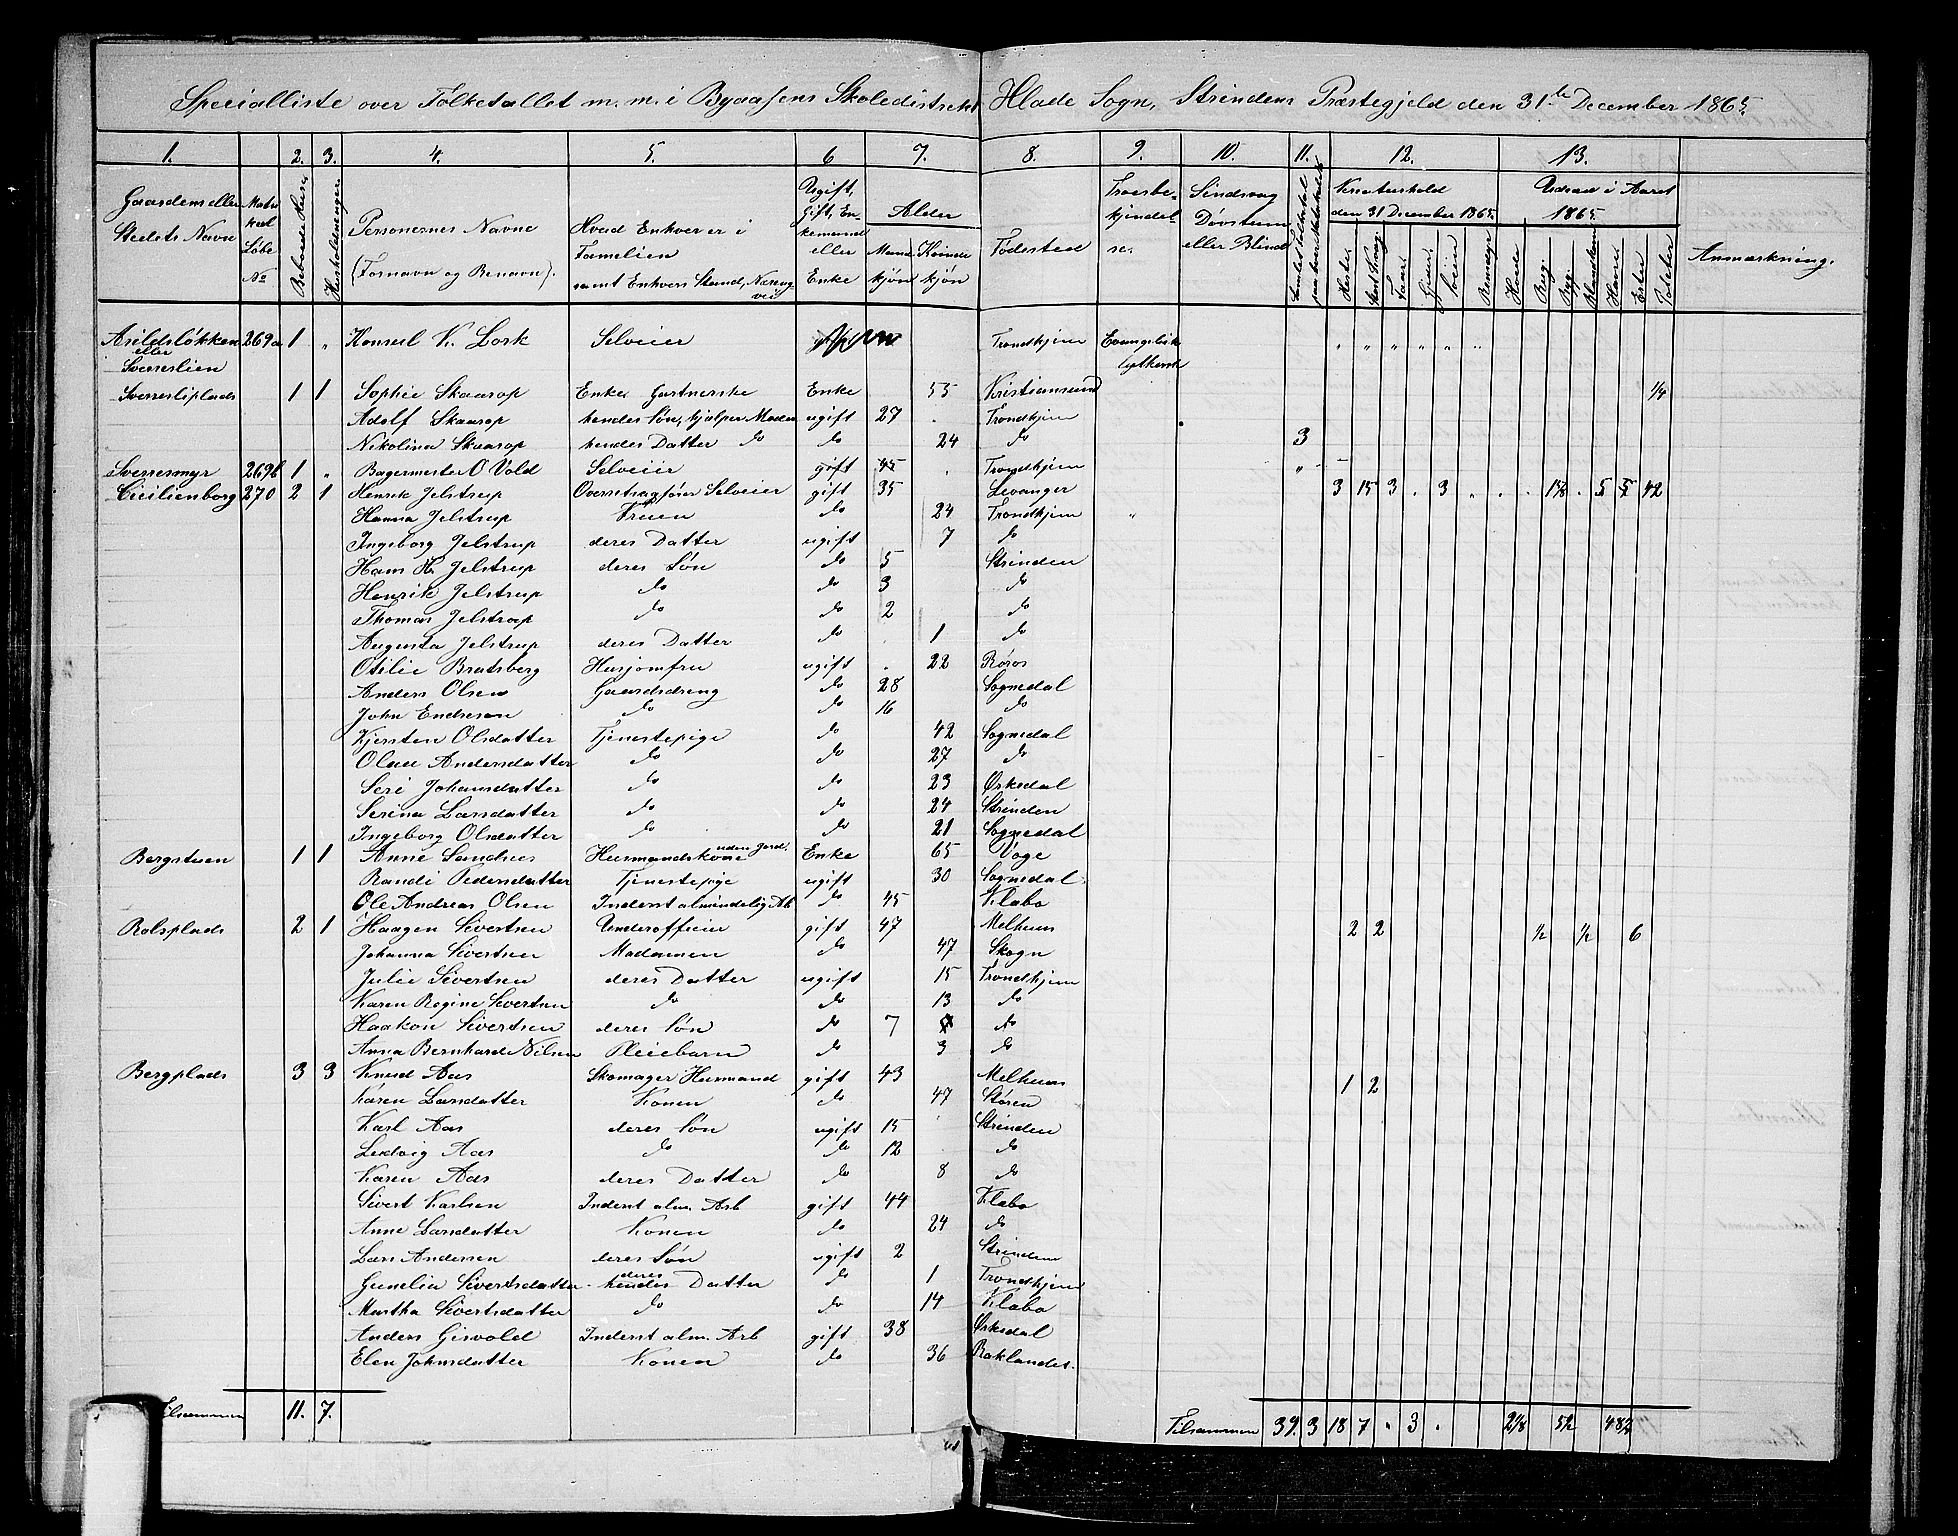 Specialliste over Folketallet m. m. i Byaasens Skoledistrekt Hlade Sogn, Strindens Præstegjeld den 31te December 1865.
1. 2. 3. 4. 5. 6 7. 8. 9. 10. 11. 12. 13.
Gaardens eller Stedets Navn
Matrikul Løbe No
Beboede Huse
Husholdninger.
Personernes Navne (Fornavn og Benavn).
Hvad Enhver er i Familien samt Enhvers Stand, Næringsvei
Ugift, Gift, Enkemand eller Enke
Alder
Mandkjøn Kvindekjøn
Fødested
Troesbekjendelse.
Sindssvag Døvstum eller Blind
Kreaturhold den 31 December 1865.
Heste Stort Kvæg Faar Gjeder Sviin Rensdyr
Udsæd i Aaret 1865
Hvede Rug Byg Blandkorn Havre Erter Poteter
Anmærkning.
Arildsløkken eller Sverreslien 269a 1 " Konsul K. Lork Selveier Trondhjem Evangelisk lythersk " " " " " "
Sverresliplads 1 1 Sophie Skaarop Enke Gartnerske Enke 55 Kristiansund 1/4
Adolf Skaarop hendes Søn, hjælper Moder ugift 27 Trondhjem
Nikolina Skaarop hendes Datter do do 24 do 3
Sverresmyr 269b 1 " Bagermester O Vold Selveier gift 45 Trondhjem "
Cicilienborg 270 2 1 Henrik Jelstrup Overretsagfører Selveier gift 35 Levanger 3 15 3 . 3 " . . 1 1/8 . 5 5 42
Hanna Jelstrup Fruen do 24 Trondhjem "
Ingeborg Jelstrup deres Datter ugift 7 do
Hans H. Jelstrup deres Søn do 5 Strinden
Henrik Jelstrup do do 3 do
Thomas Jelstrup do do 2 do
Augusta Jelstrup deres Datter do 1 do
Otilie Bratsberg Husjomfru ugift 22 Røros
Anders Olsen Gaardsdreng do 28 Sognedal
John Endresen do do 16 do
Kjersten Olsdatter Tjenestepige do 42 Sognedal
Olau Andersdatter do do 27 do
Seri Johansdatter do do 23 Ørkedal
Serina Larsdatter do do 24 Strinden
Ingeborg Olsdatter do do 21 Sognedal
Bergstuen 1 1 Anne Sandnes Husmandskone uden Jord. Enke 65 Voge
Randi Pedersdatter Tjenestepige ugift 30 Sognedal.
Ole Andreas Olsen Inderst almindelig Arb do 45 Klæbo
Rolsplads 2 1 Haagen Sivertsen Underofficier gift 47 Melhuus 2 2 1/2 1/2 6
Johanna Sivertsen Madamen do 47 Skogn
Julie Sivertsen deres Datter ugift 15 Trondhjem
Karen Regine Sivertsen do do 13 do
Haakon Sivertsen deres Søn do 7 do
Anna Bernharde Nilsen Pleiebarn do 3 do
Bergplads 3 3 Knud Aas Skomager Husmand gift 43 Melhuus 1 2
Karen Larsdatter Konen do 47 Støren
Karl Aas deres Søn ugift 15 Strinden
Ludvig Aas do do 12 do
Karen Aas deres Datter do 8 do
Sivert Karlsen Inderst alm. Arb gift 44 Klæbo
Anne Larsdatter Konen do 24 do
Lars Andersen deres Søn ugift 2 Strinden
Gunelia Sivertsdatter deres Datter do 1 Trondhjem
Martha Sivertsdatter do do 14 Klæbo
Anders Gisvold Inderst alm. Arb gift 38 Ørkedal
Elen Johnsdatter Konen do 36 Baklandet.
Tilsammen 11. 7. Tilsammen 39. 3 18 7 " 3 . 2 1/8 5 1/2 48 1/4